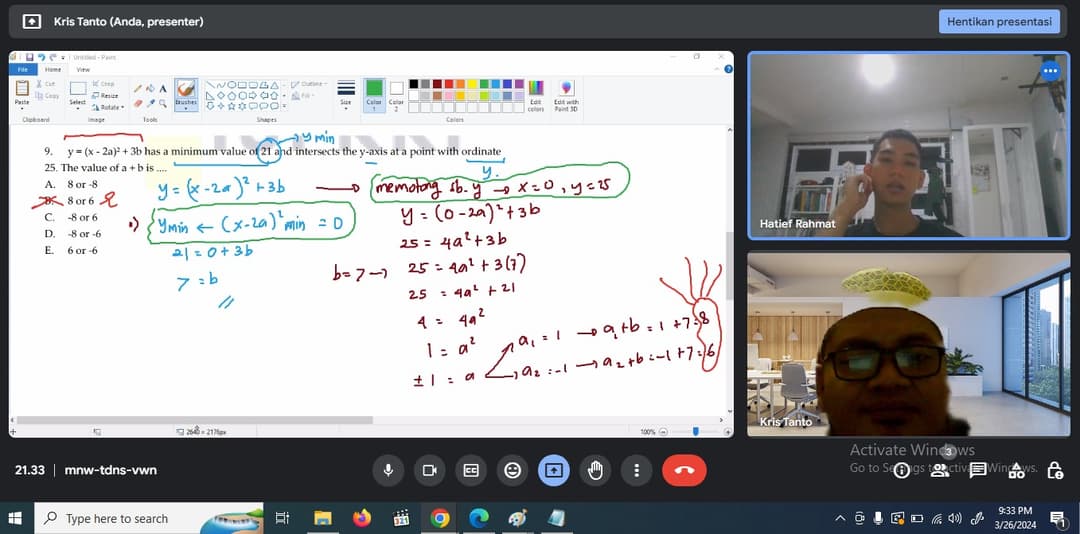 Kris Tanto (Anda, presenter)
Hentikan presentasi
Untitled - Paint
File Home View
Paste
Cut
Copy
Clipboard
Select
Crop
Resize
Rotate
Image
Tools
Brushes
Shapes
Outline
Fill
Size
Color 1
Color 2
Colors
Edit colors
Edit with Paint 3D
y min
9. y = (x - 2a)² + 3b has a minimum value of 21 and intersects the y-axis at a point with ordinate
25. The value of a + b is ....
y.
A. 8 or -8
B. 8 or 6
C. -8 or 6
D. -8 or -6
E. 6 or -6
y = (x - 2a)² + 3b
ymin ← (x-2a)² min = 0
21 = 0 + 3b
7 = b
memotong sb. y → x=0, y=25
y = (0-2a)² + 3b
25 = 4a² + 3b
b=7 → 25 = 4a² + 3(7)
25 = 4a² + 21
4 = 4a²
1 = a²
±1 = a
a₁ = 1 → a₁+b = 1+7=8
a₂ = -1 → a₂+b = -1+7=6
2640 × 2176px
100%
Hatief Rahmat
Kris Tanto
Activate Windows
Go to Settings to activate Windows.
3
21.33 | mnw-tdns-vwn
CC
Type here to search
321
9:33 PM
3/26/2024
1